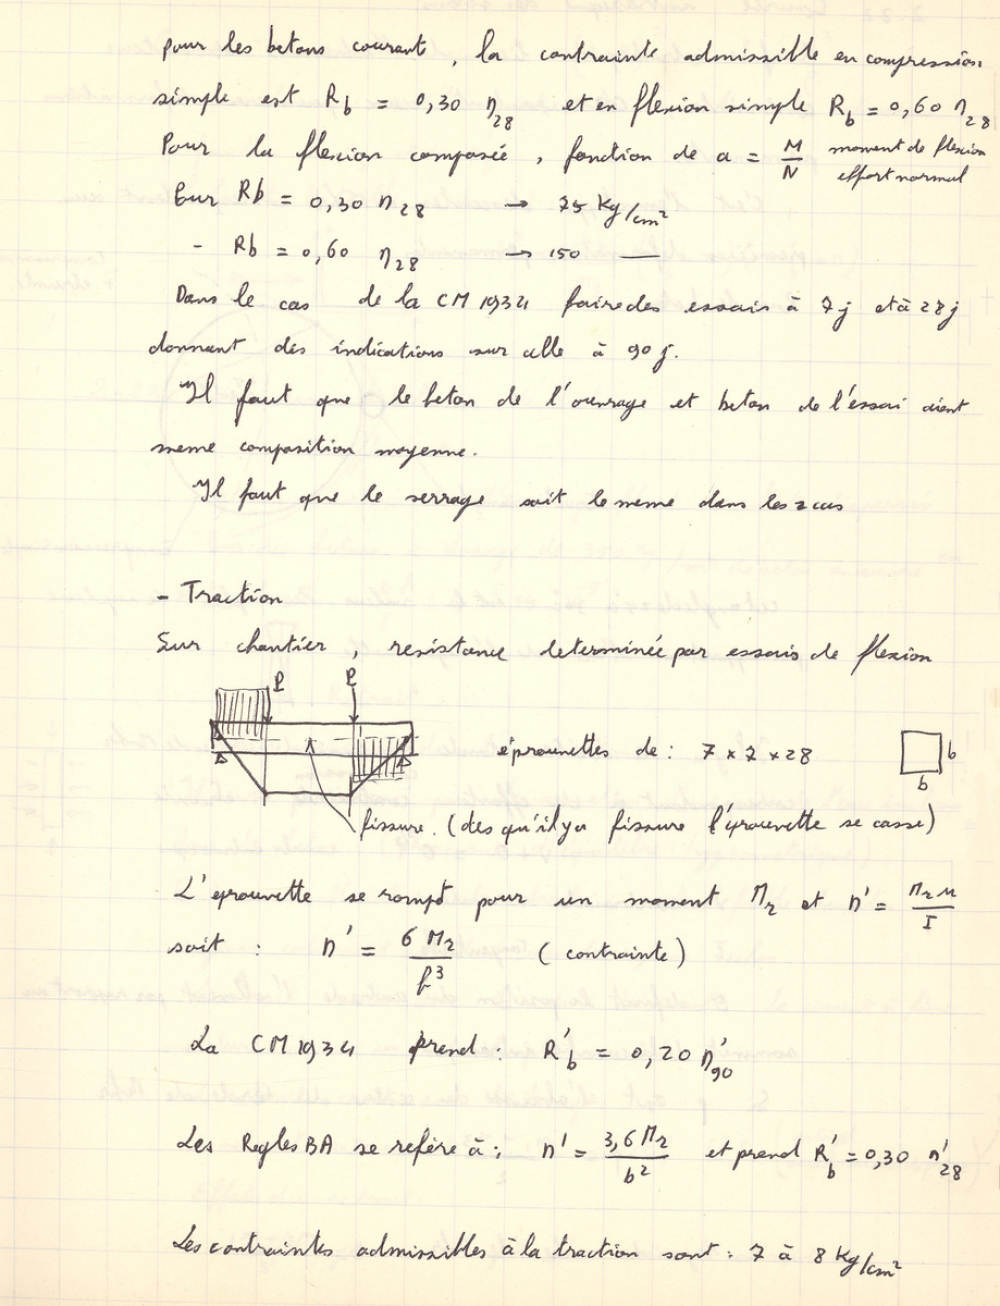 pour les betons courants, la contrainte admissible en compression
simple est Rb = 0,30 n28 et en flexion simple Rb = 0,60 n28
Pour la flexion composée, fonction de a = M/N moment de flexion
effort normal
Sur Rb = 0,30 n28 → 75 Kg/cm²
- Rb = 0,60 n28 → 150 —
Dans le cas de la CM 1934 faire des essais à 7j et à 28j
donnant des indications sur celle à 90 j.
Il faut que le beton de l'ouvrage et beton de l'éssai aient
meme composition moyenne.
Il faut que le serrage soit le meme dans les 2 cas
- Traction
Sur chantier, resistance determinée par essais de flexion
P P
éprouvettes de : 7 x 7 x 28
b
b
fissure. (des qu'il y a fissure l'éprouvette se casse)
L'eprouvette se rompt pour un moment Mr et n' = Mr u / I
soit : n' = 6 Mr / b³ (contrainte)
La CM 1934 prend : R'b = 0,20 n'90
Les Regles BA se refère à : n' = 3,6 Mr / b² et prend R'b = 0,30 n'28
Les contraintes admissibles à la traction sont : 7 à 8 Kg/cm²